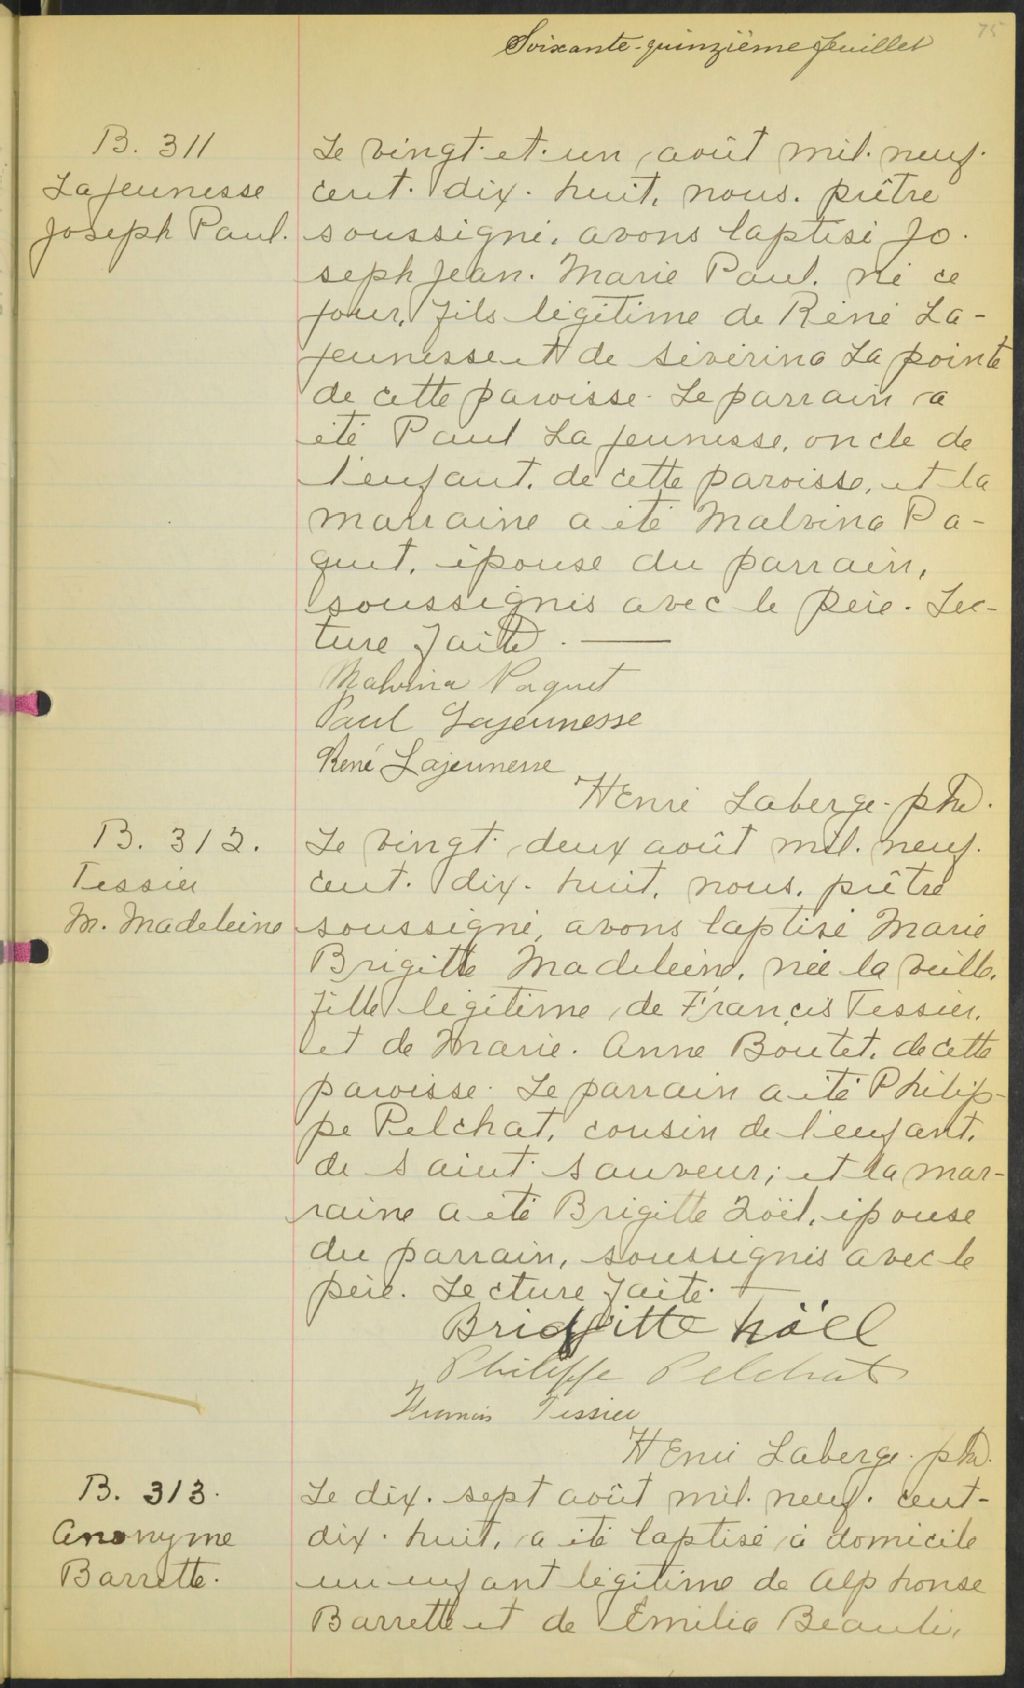 75
Soixante-quinzième feuillet
B. 311
Lajeunesse
Joseph Paul.
Le vingt-et-un août mil-neuf-
cent-dix-huit, nous, prêtre
soussigné, avons baptisé Jo-
seph Jean-Marie Paul, né ce
jour, fils légitime de René La-
jeunesse et de Sévérina Lapointe
de cette paroisse. Le parrain a
été Paul Lajeunesse, oncle de
l'enfant, de cette paroisse, et la
marraine a été Malvina Pa-
quet, épouse du parrain,
soussignés avec le père. Lec-
ture faite. —
Malvina Paquet
Paul Lajeunesse
René Lajeunesse
Henri Laberge ptre.
B. 312.
Tessier
M. Madeleine
Le vingt-deux août mil-neuf-
cent-dix-huit, nous, prêtre
soussigné, avons baptisé Marie
Brigitte Madeleine, née la veille,
fille légitime de Francis Tessier,
et de Marie-Anne Boutet, de cette
paroisse. Le parrain a été Philip-
pe Pelchat, cousin de l'enfant,
de Saint-Sauveur; et la mar-
raine a été Brigitte Noël, épouse
du parrain, soussignés avec le
père. Lecture faite. —
Bridgitte Noël
Philippe Pelchat
Francis Tessier
Henri Laberge ptre.
B. 313.
Anonyme
Barrette.
Le dix-sept août mil-neuf-cent-
dix-huit, a été baptisé à domicile
un enfant légitime de Alphonse
Barrette et de Émilia Beauli,